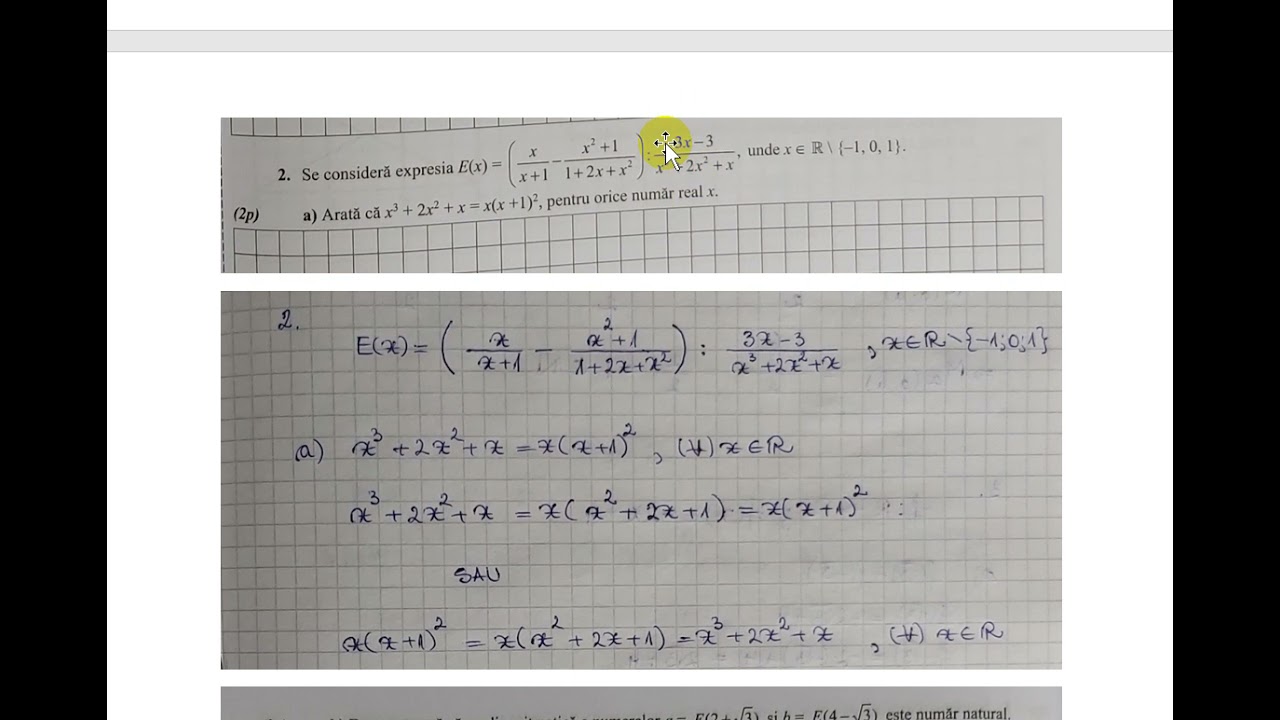 2. Se consideră expresia E(x) = (x/(x+1) − (x²+1)/(1+2x+x²)) : (3x−3)/(x³+2x²+x), unde x ∈ ℝ \ {−1, 0, 1}.
(2p) a) Arată că x³ + 2x² + x = x(x+1)², pentru orice număr real x.
2.
E(x) = (x/(x+1) − (x²+1)/(1+2x+x²)) : (3x−3)/(x³+2x²+x), x∈ℝ\{−1;0;1}
a) x³ + 2x² + x = x(x+1)², (∀) x ∈ ℝ
x³ + 2x² + x = x(x² + 2x + 1) = x(x+1)²
SAU
x(x+1)² = x(x² + 2x + 1) = x³ + 2x² + x, (∀) x ∈ ℝ
E(2+√3) și b = E(4−√3) este număr natural.